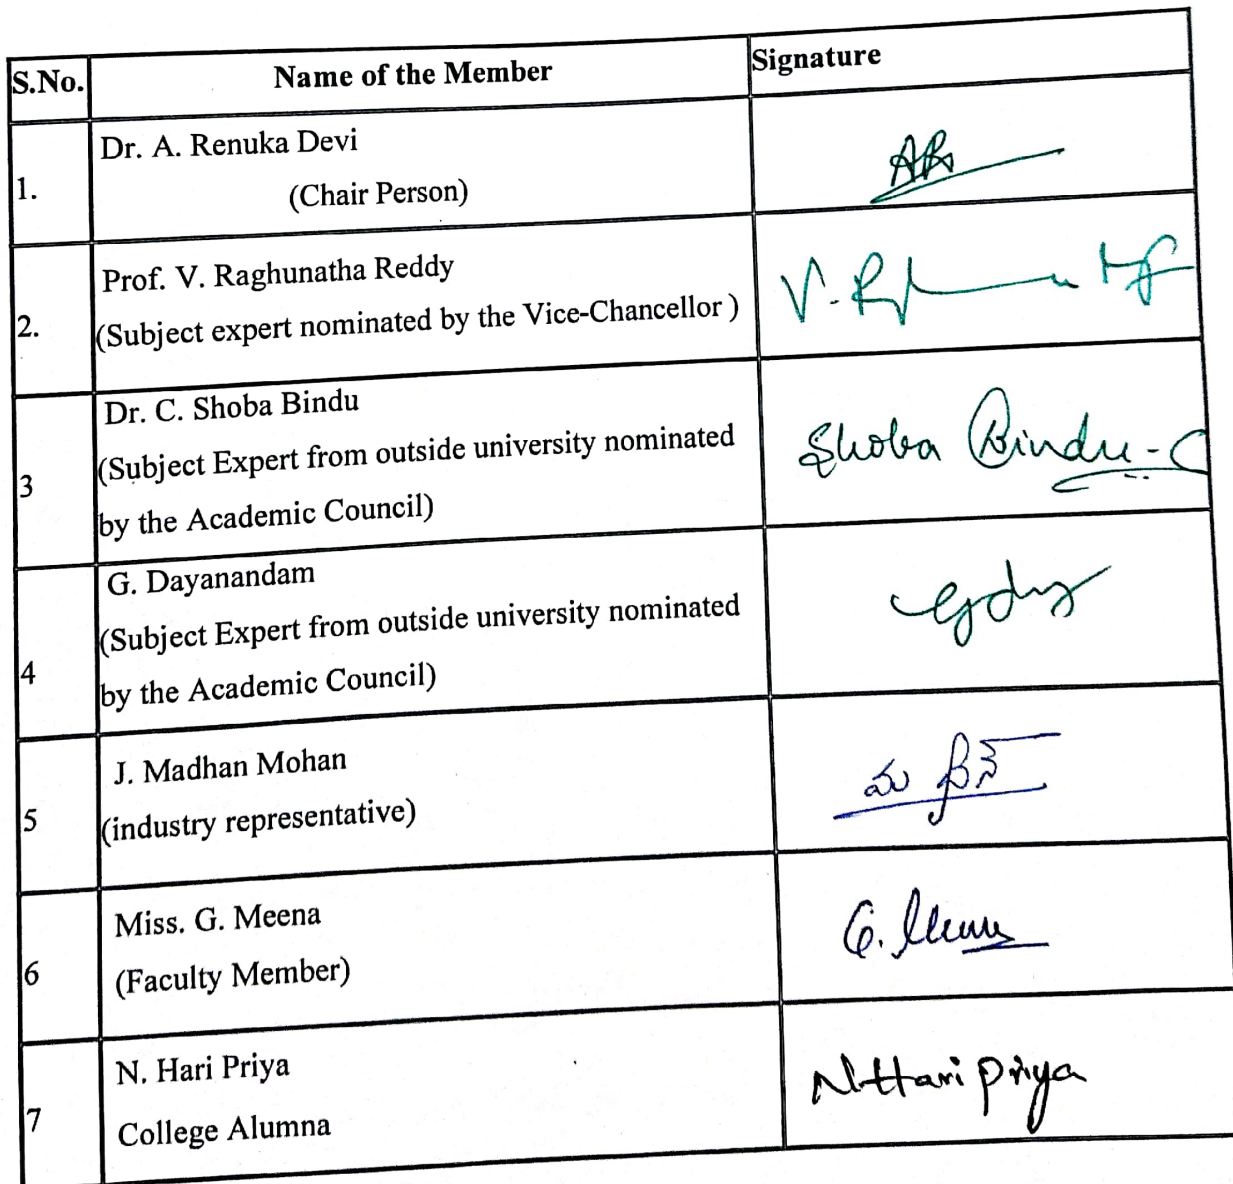 S.No. Name of the Member Signature
1. Dr. A. Renuka Devi
(Chair Person)
AR
2. Prof. V. Raghunatha Reddy
(Subject expert nominated by the Vice-Chancellor )
3 Dr. C. Shoba Bindu
(Subject Expert from outside university nominated
by the Academic Council)
Shoba Bindu-C
4 G. Dayanandam
(Subject Expert from outside university nominated
by the Academic Council)
5 J. Madhan Mohan
(industry representative)
6 Miss. G. Meena
(Faculty Member)
G. Meena
7 N. Hari Priya
College Alumna
N Hari priya